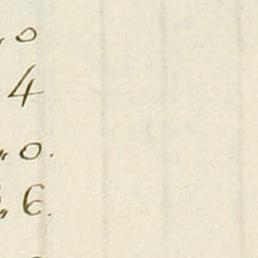 ,0
4
,,0.
,6.